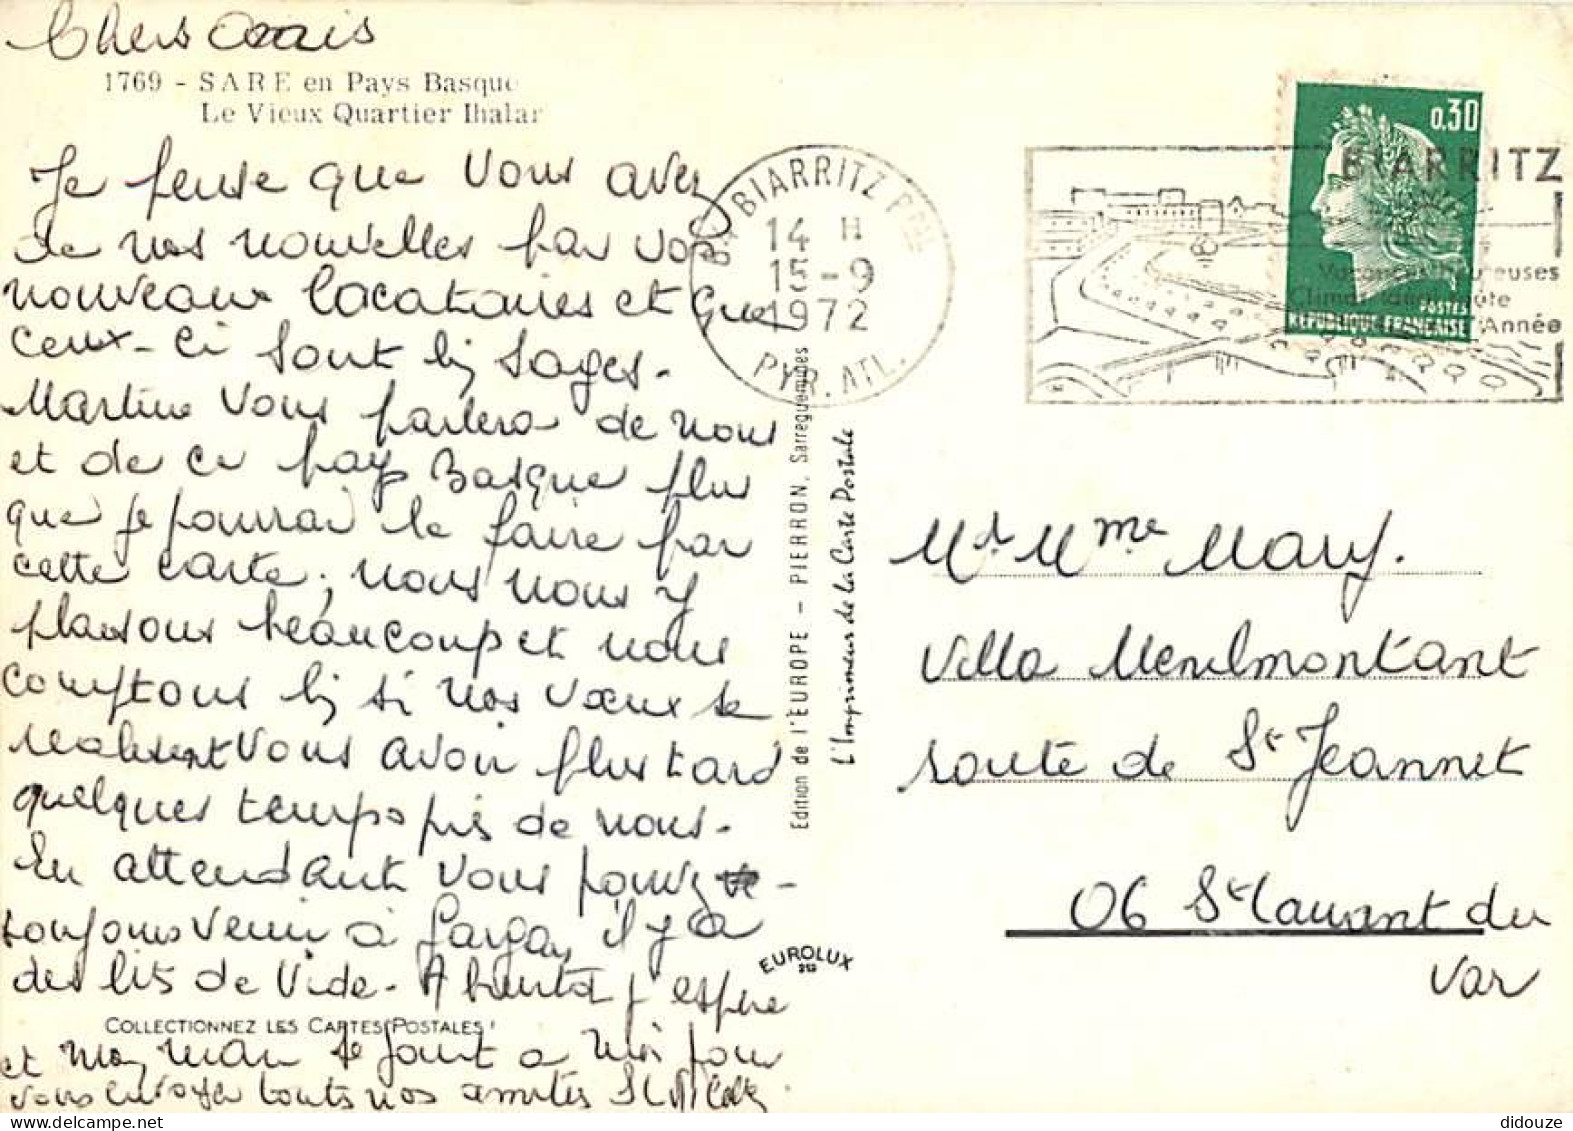 Chers Amis
1769 - SARE en Pays Basque
Le Vieux Quartier Ihalar
Je pense que vous avez
de nos nouvelles par vos
nouveaux locataires et que
ceux-ci sont bs sages.
Martine vous parlera de nous
et de ce pays Basque plus
que je pourrai le faire par
cette carte, nous nous y
plaisons beaucoup et nous
comptons bs si nos vœux se
realisent vous avoir plus tard
quelques temps près de nous.
En attendant vous pouvez
toujours venir à il y a
des lits de vide. A bientôt j'espère
COLLECTIONNEZ LES CARTES POSTALES!
et mon man se joint a moi pour
vous envoyer toutes nos amitiés
Edition de l'EUROPE - PIERRON, Sarreguemines
L'Imprimeur de la Carte Postale
EUROLUX
BIARRITZ PPAL
14 H
15-9
1972
PYR. ATL.
BIARRITZ
Vacances heureuses
Climat idéal toute
l'Année
0,30
POSTES
REPUBLIQUE FRANÇAISE
Mr Mme Mary.
Villa Menilmontant
route de St Jeannet
06 St Laurant du
Var
didouze